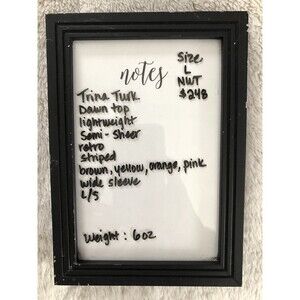 notes
Size
L
NWT
$248
Trina Turk
Dawn top
lightweight
Semi-Sheer
retro
striped
brown, yellow, orange, pink
wide sleeve
L/S
Weight: 6oz